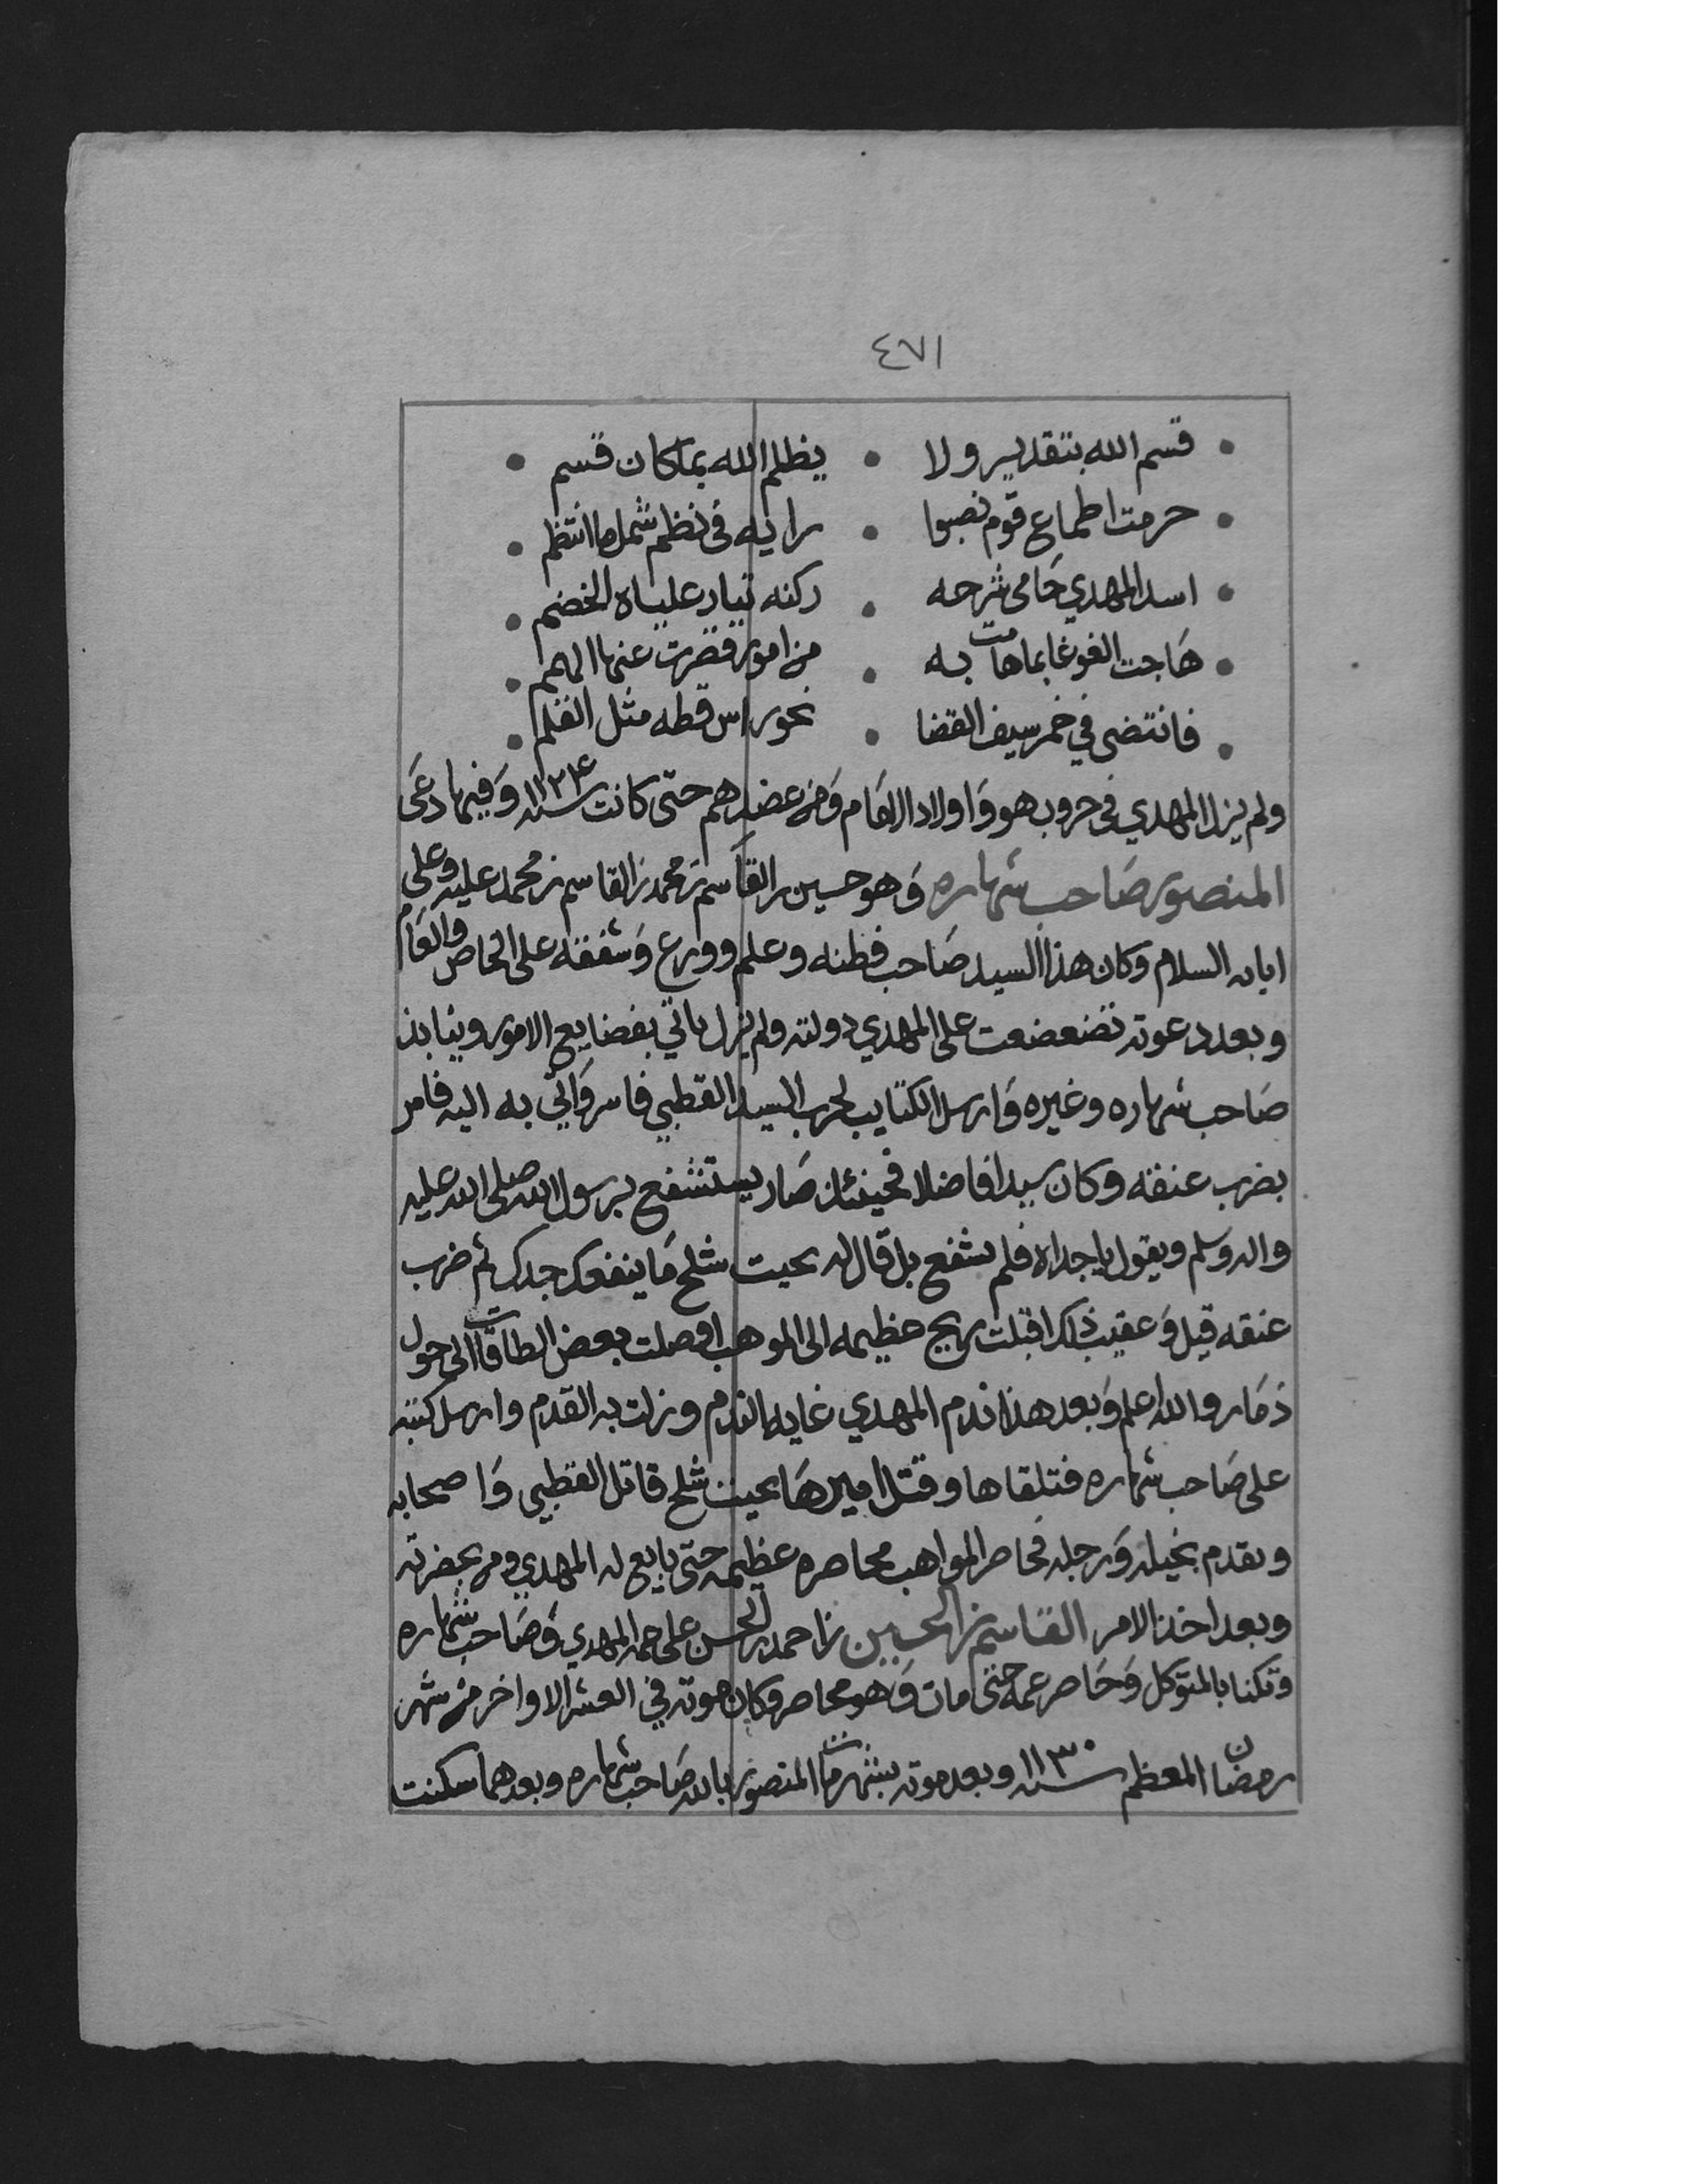 ٤٧١
قسم الله بتقدير ولا • يظلم الله بما كان قسم
حرمت اطماع قوم نصبوا • رايه في نظم شمل ما انتظم
اسد المهدي حامي شرحه • ركنه تيار علياه الخضم
هاجت الغوغا بما هامت به • من امور قصرت عنها الهمم
فانتضى في خمر سيف القضا • نحو راس قطه مثل القلم
ولم يزل المهدي في حروب هو واولاد الامام ومن عضدهم حتى كانت سنة ١١٢٤ وفيها دعى
المنصور صاحب شهاره وهو حسين بن القاسم بن محمد بن القاسم بن محمد عليه وعلى
ابايه السلام وكان هذا السيد صاحب فطنه وعلم وورع وشفقه على الخاص والعام
وبعد دعوته تضعضعت على المهدي دولته ولم يزل ياتي بفضايع الامور وينابذ
صاحب شهاره وغيره وارسل الكتايب لحرب السيد القطبي فاسر واتي به اليه فامر
بضرب عنقه وكان سيدا فاضلا فحينئذ صار يستشفع برسول الله صلى الله عليه
واله وسلم ويقول يا جداه فلم يشفع بل قال له بحيت شلح ما ينفعك جدك ثم ضرب
عنقه قيل وعقيب ذلك اقبلت ريح عظيمه الى المواهب اوصلت بعض الطاقات الى حول
ذمار والله اعلم وبعد هذا ندم المهدي غايه الندم وزلت به القدم وارسل كتبه
على صاحب شهاره فتلقاها وقتل اميرها بحيت شلح قاتل القطبي واصحابه
وتقدم بخيله ورجله فحاصر المواهب محاصره عظيمه حتى بايع له المهدي ومن بحضرته
وبعد اخذ الامر القاسم بن الحسين بن احمد بن الحسن على عمه المهدي وصاحب شهاره
وتكنا بالمتوكل وحاصر عمه حتى مات وهو محاصر وكان موته في العشر الاواخر من شهر
رمضان المعظم سنة ١١٣٠ وبعد موته بشهر مات المنصور بالله صاحب شهاره وبعدهما سكنت